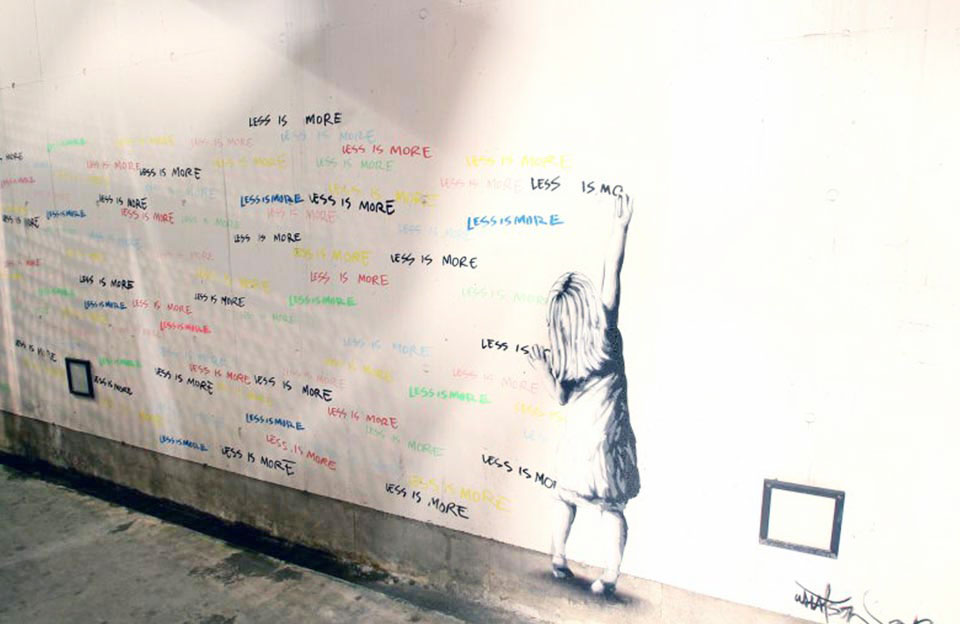 LESS IS MORE
LESS IS MORE
LESS IS MORE
LESS IS MORE
LESS IS MORE
LESS IS MORE
MORE
LESS IS MORE
LESS IS MORE
LESS IS MORE
LESS IS MORE
LESS IS MORE
LESS IS MORE
LESS IS MO
LESS IS MORE
LESS IS MORE
LESS IS MORE
LESS IS MORE
LESS IS MORE
LESS IS MORE
LESS IS MORE
LESS IS MORE
LESS IS MORE
LESS IS MORE
LESS IS MORE
LESS IS MORE
LESS IS MORE
LESS IS MORE
LESS IS MORE
LESS IS MORE
LESS IS MORE
LESS IS MORE
LESS IS MORE
LESS IS MORE
LESS IS MORE
LESS IS MORE
LESS IS MORE
LESS IS MORE
LESS IS MORE
LESS IS MORE
LESS IS
LESS IS MORE
LESS IS MORE
LESS IS MORE
LESS IS MORE
LESS IS MORE
LESS IS MORE
LESS IS MORE
LESS IS MORE
LESS IS MORE
LESS IS MORE
LESS IS MORE
LESS IS MORE
LESS IS MORE
LESS IS MORE
LESS IS MORE
LESS IS MO
LESS IS MORE
LESS IS MORE